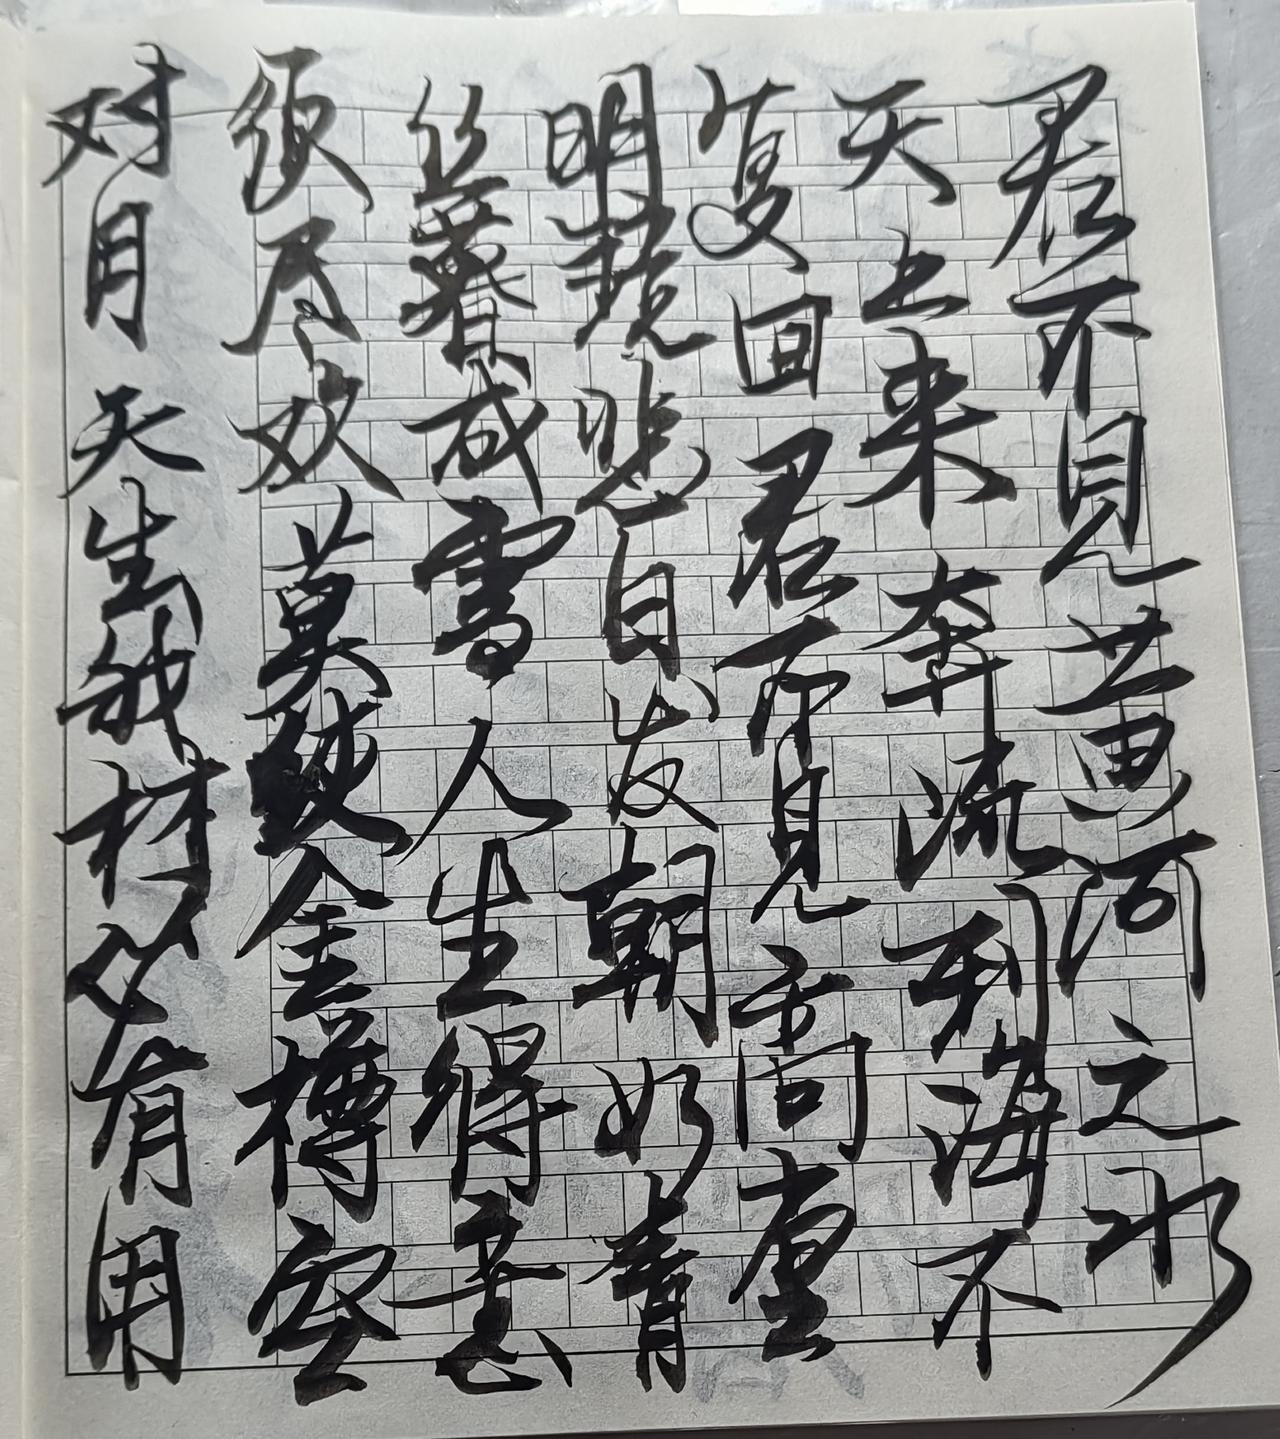 君不见黄河之水
天上来奔流到海不
复回君不见高堂
明镜悲白发朝如青
丝暮成雪人生得意
须尽欢莫使金樽空
对月天生我材必有用